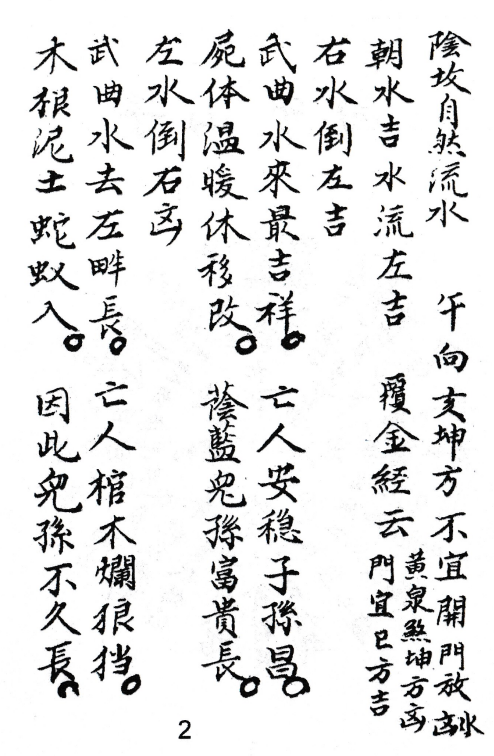 陰坟自然流水　午向亥坤方不宜開門放水凶
黃泉煞坤方凶
門宜巳方吉
朝水吉水流左吉　金經云
右水倒左吉
武曲水來最吉祥。亡人安穏子孫昌。
屍体温暖休移改。蔭藍児孫富貴長。
左水倒右凶
武曲水去左畔長。亡人棺木爛狼挡。
木根泥土蛇蚁入。因此児孫不久長。
2